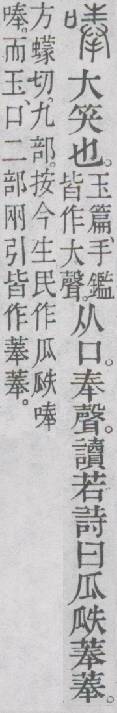 唪 大笑也。玉篇、手鑑皆作大聲。从口。奉聲。讀若詩曰瓜瓞菶菶。
方蠓切。九部。按今生民作瓜瓞唪
唪。而玉、口二部㒳引皆作菶菶。